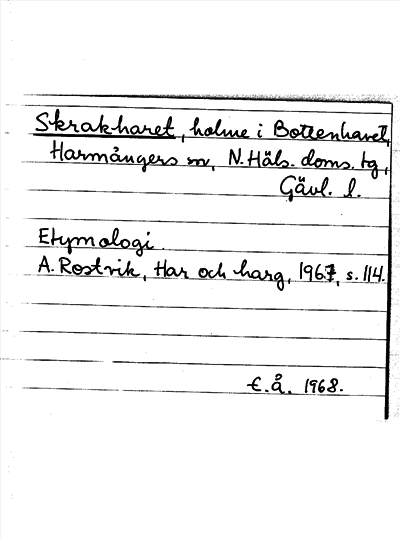 Skrakharet, holme i Bottenhavet,
Harmångers sn, N. Häls. doms. tg,
Gävl. l.
Etymologi.
A. Rostvik, Har och harg, 1967, s. 114.
E.Å. 1968.